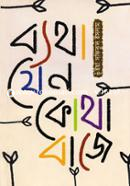 ব্যথা
যেন
কোথা
বাজে